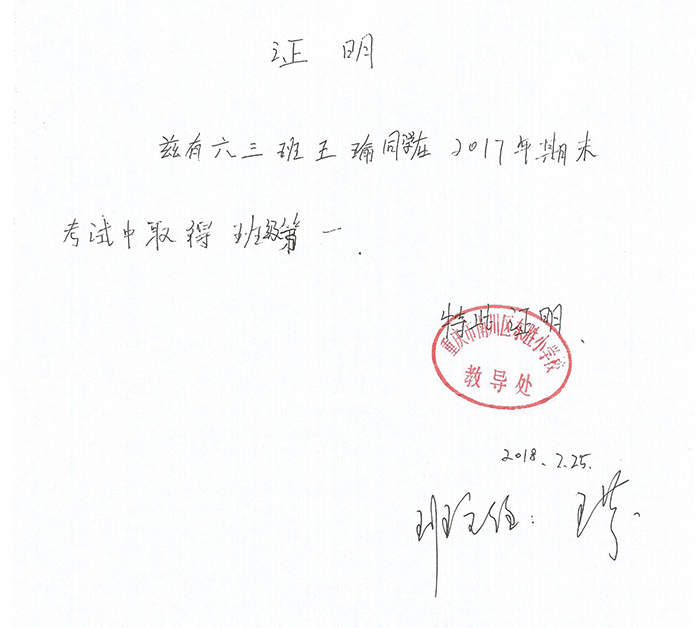 证明
兹有六三班王瑜同学在2017年期末
考试中取得班级第一.
特此证明.
重庆市南川区东胜小学校
教导处
2018.2.25.
班主任:王芬.